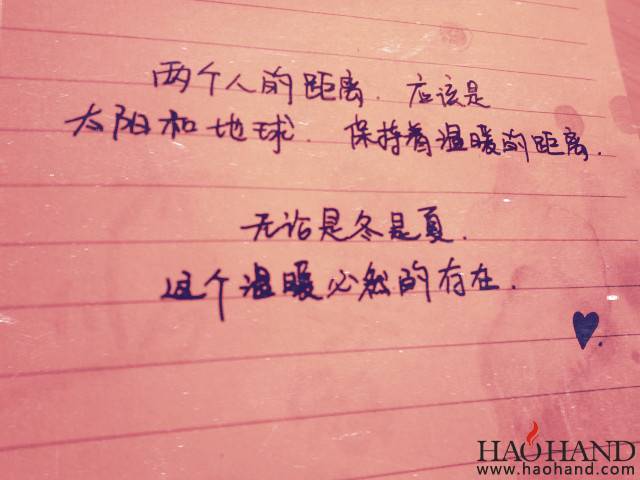 两个人的距离. 应该是
太阳和地球. 保持着温暖的距离.
无论是冬是夏.
这个温暖必然的存在.
HAOHAND
www.haohand.com